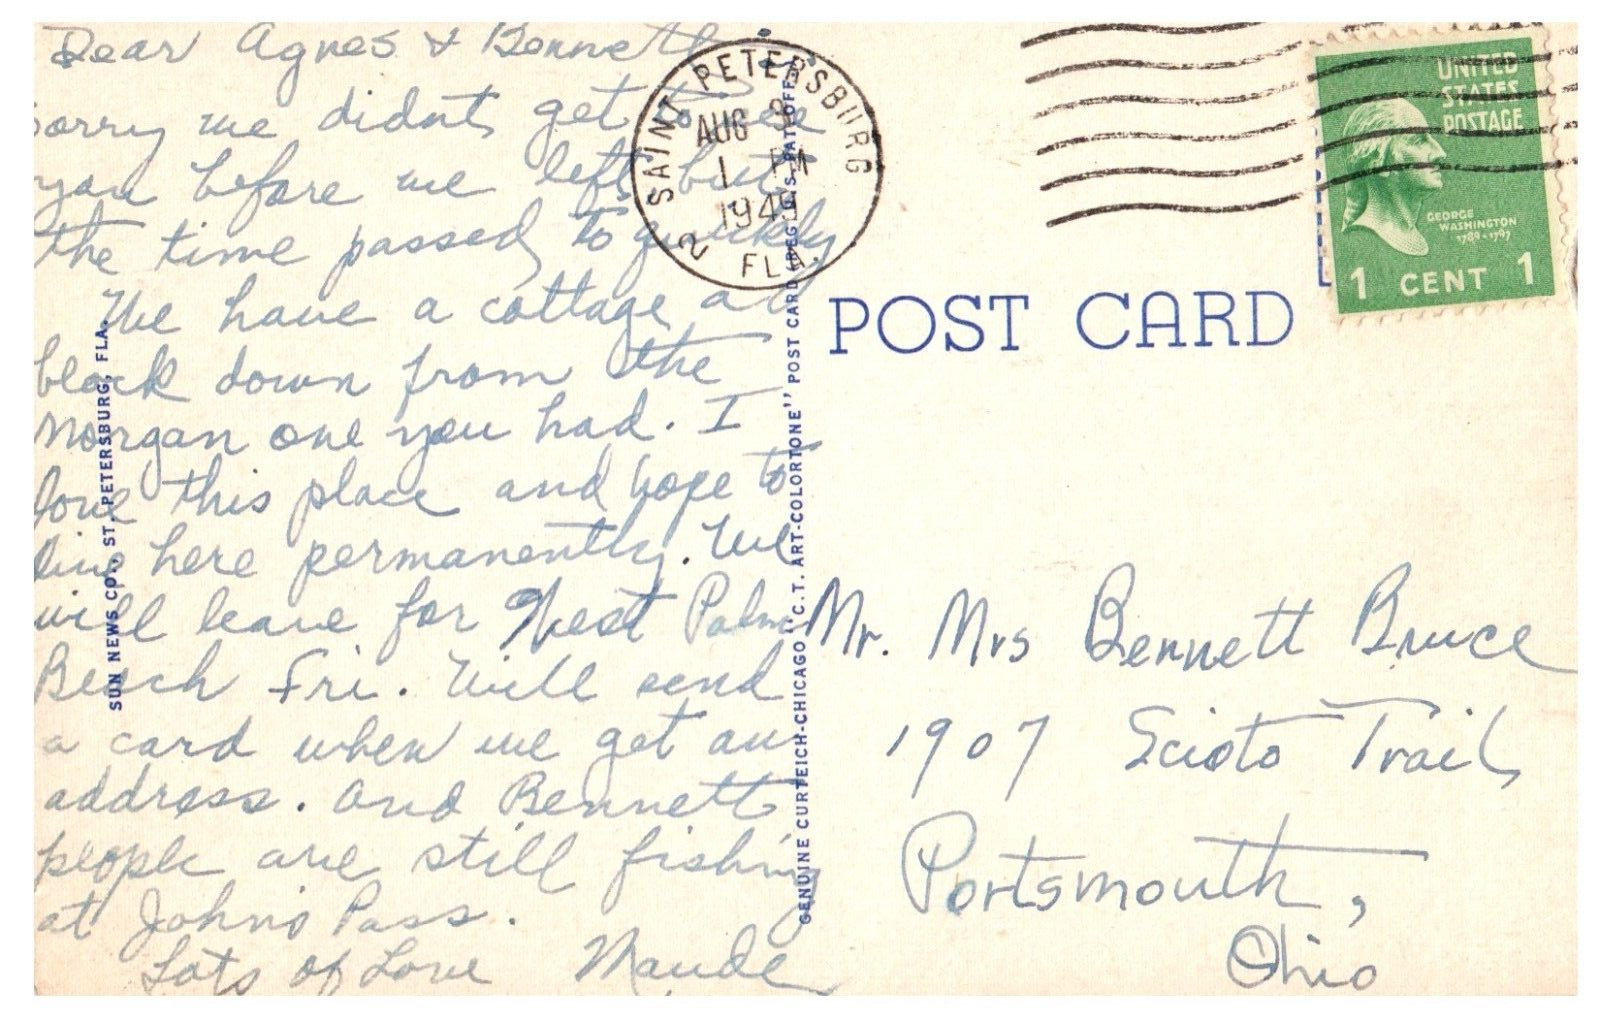 Dear Agnes & Bennett
Sorry we didnt get to see
you before we left but
the time passed to quickly
We have a cottage a
block down from the
Morgan one you had. I
love this place and hope to
live here permanently. We
will leave for West Palm
Beach Fri. Will send
a card when we get an
address. And Bennett
people are still fishing
at Johns Pass.
Lots of Love Maude
SUN NEWS CO., ST. PETERSBURG, FLA.
GENUINE CURTEICH-CHICAGO "C.T. ART-COLORTONE" POST CARD (REG. U.S. PAT. OFF.)
SAINT PETERSBURG
2 FLA.
AUG
1 PM
1949
POST CARD
UNITED
STATES
POSTAGE
GEORGE
WASHINGTON
1789-1797
1 CENT 1
Mr. Mrs Bennett Bruce
1907 Scioto Trail,
Portsmouth,
Ohio